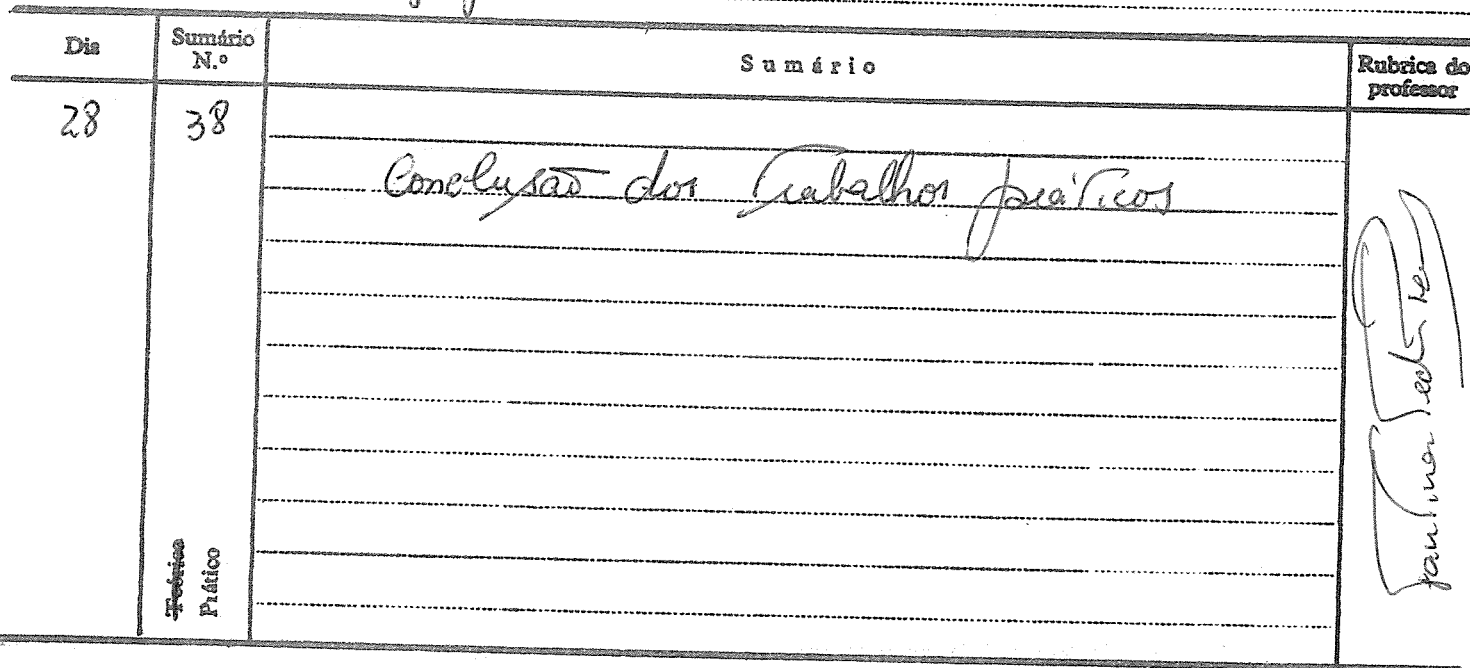 Dia
Sumário
N.º
Sumário
Rubrica do
professor
28
38
Conclusão dos Trabalhos práticos
Teórico
Prático